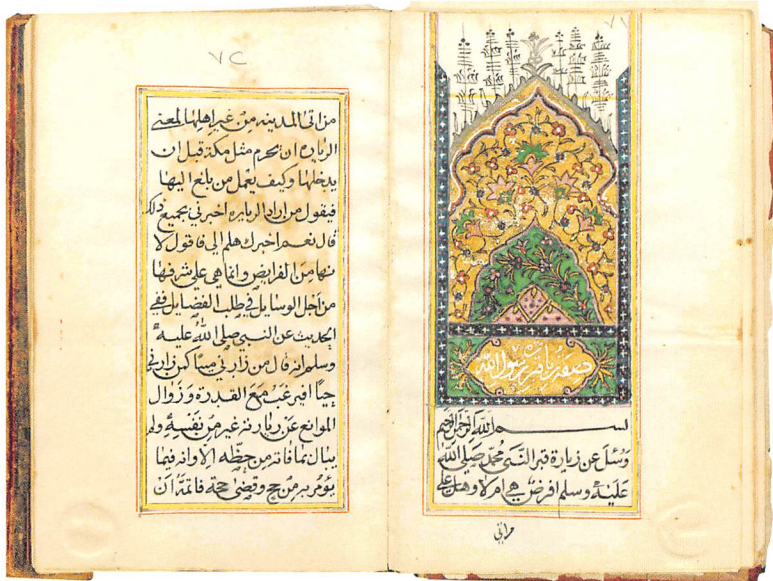 ٧١
صفة زيارة قبر رسول الله
بسم الله الرحمن الرحيم
وسئل عن زيارة قبر النبي محمد صلى الله
عليه وسلم افرض هي ام لا وهل على
من اتى
٧٢
من اتى المدينه من غير اهلها لمعنى
الزياره ان يحرم مثل مكة قبل ان
يدخلها وكيف يعمل من بلغ اليها
فيقول من اراد الزياره اخبرني بجميع ذلك
قال نعم اخبرك هلم الي فاقول لا
من الفرايض وانما هي على شرفها
من اجل الوسايل في طلب الفضايل ففي
الحديث عن النبي صلى الله عليه
وسلم انه قال من زارني ميتا كمن زارني
حيا افيرغب مع القدرة وزوال
الموانع عن زيارته غير من نفسه ولم
يبال بما فاته من حظه الا وانه فيما
يؤمر به من حج وقضى حجة فاتمه ان